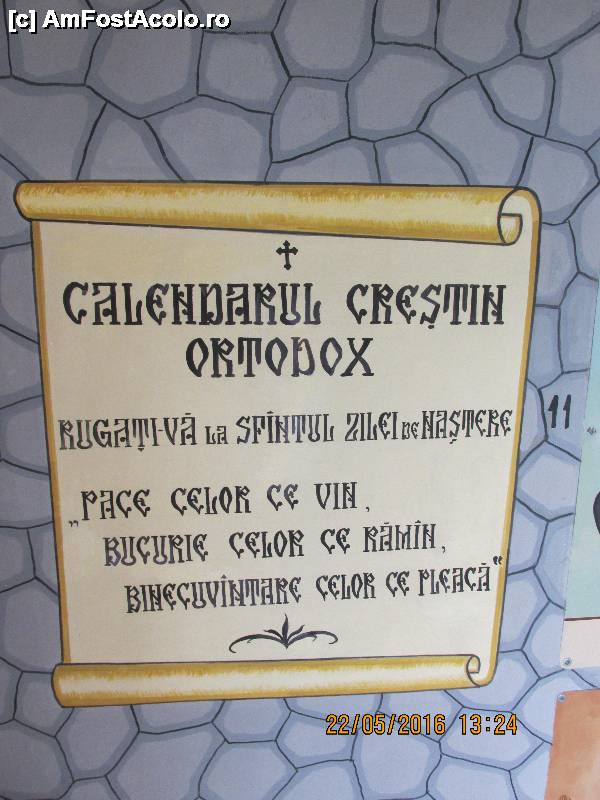 [c] AmFostAcolo.ro
CALENDARUL CREȘTIN
ORTODOX
RUGAȚI-VĂ LA SFÎNTUL ZILEI DE NAȘTERE
11
„PACE CELOR CE VIN,
BUCURIE CELOR CE RĂMÎN,
BINECUVÎNTARE CELOR CE PLEACĂ"
22/05/2016 13:24